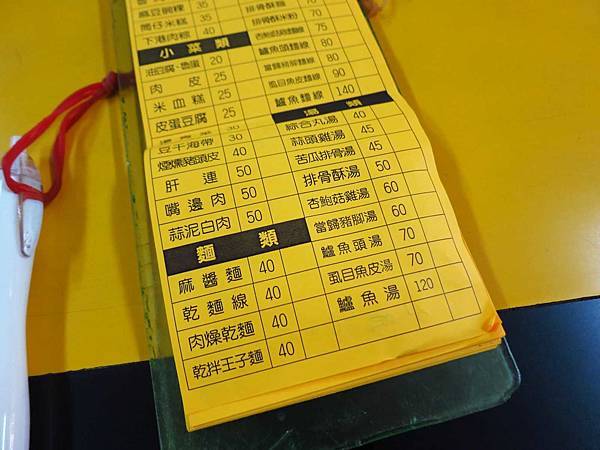 麻豆碗粿 35
筒仔米糕 35
下港肉粽 40
小菜類
油豆腐、魯蛋 20
肉皮 25
米血糕 25
皮蛋豆腐 25
30
豆干海帶 30
煙燻豬頭皮 40
肝連 50
嘴邊肉 50
蒜泥白肉 50
麵類
麻醬麵 40
乾麵線 40
肉燥乾麵 40
乾拌王子麵 40
排骨酥麵 70
排骨酥米粉 70
杏鮑菇雞麵線 75
鱸魚頭麵線 80
當歸豬腳麵線 80
虱目魚皮麵線 90
鱸魚麵線 140
湯類
綜合丸湯 40
蒜頭雞湯 45
苦瓜排骨湯 45
排骨酥湯 50
杏鮑菇雞湯 60
當歸豬腳湯 60
鱸魚頭湯 70
虱目魚皮湯 70
鱸魚湯 120